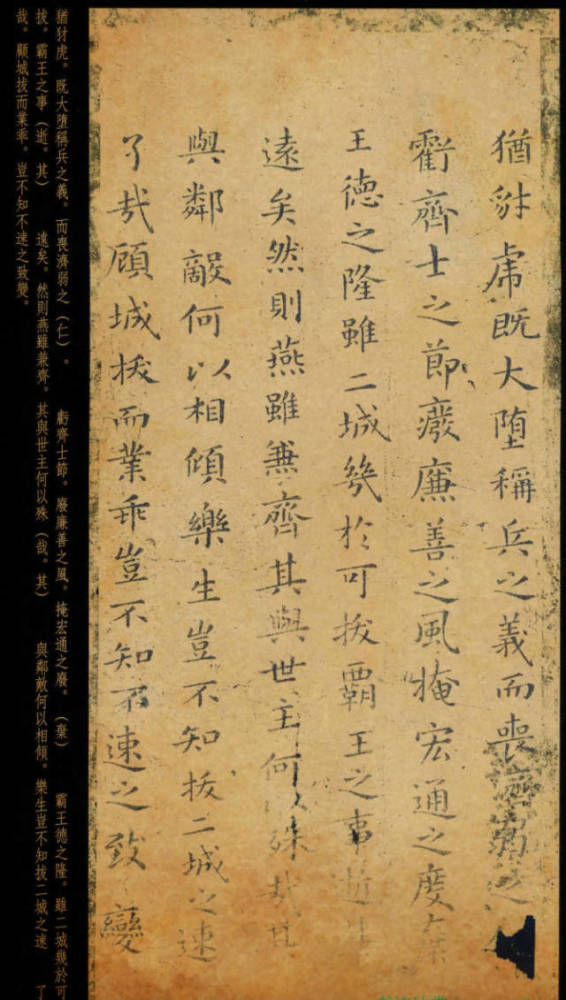 猶豺虎既大堕稱兵之義而喪濟弱之
虧齊士之節癈廉善之風掩宏通之度
王德之隆雖二城幾於可拔覇王之事逝
遠矣然則燕雖兼齊其與世主何以殊哉其
與鄰敵何以相傾樂生豈不知拔二城之速
了哉顧城拔而業乖豈不知不速之致變
猶豺虎。既大堕稱兵之義。而喪濟弱之（仁）。 虧齊士節。廢廉善之風。掩宏通之廢。（棄） 霸王德之隆。雖二城幾於可
拔。霸王之事（逝。其） 遠矣。然則燕雖兼齊。其與世主何以殊（哉。其） 與鄰敵何以相傾。樂生豈不知拔二城之速 了
哉。顧城拔而業乖。豈不知不速之致變。